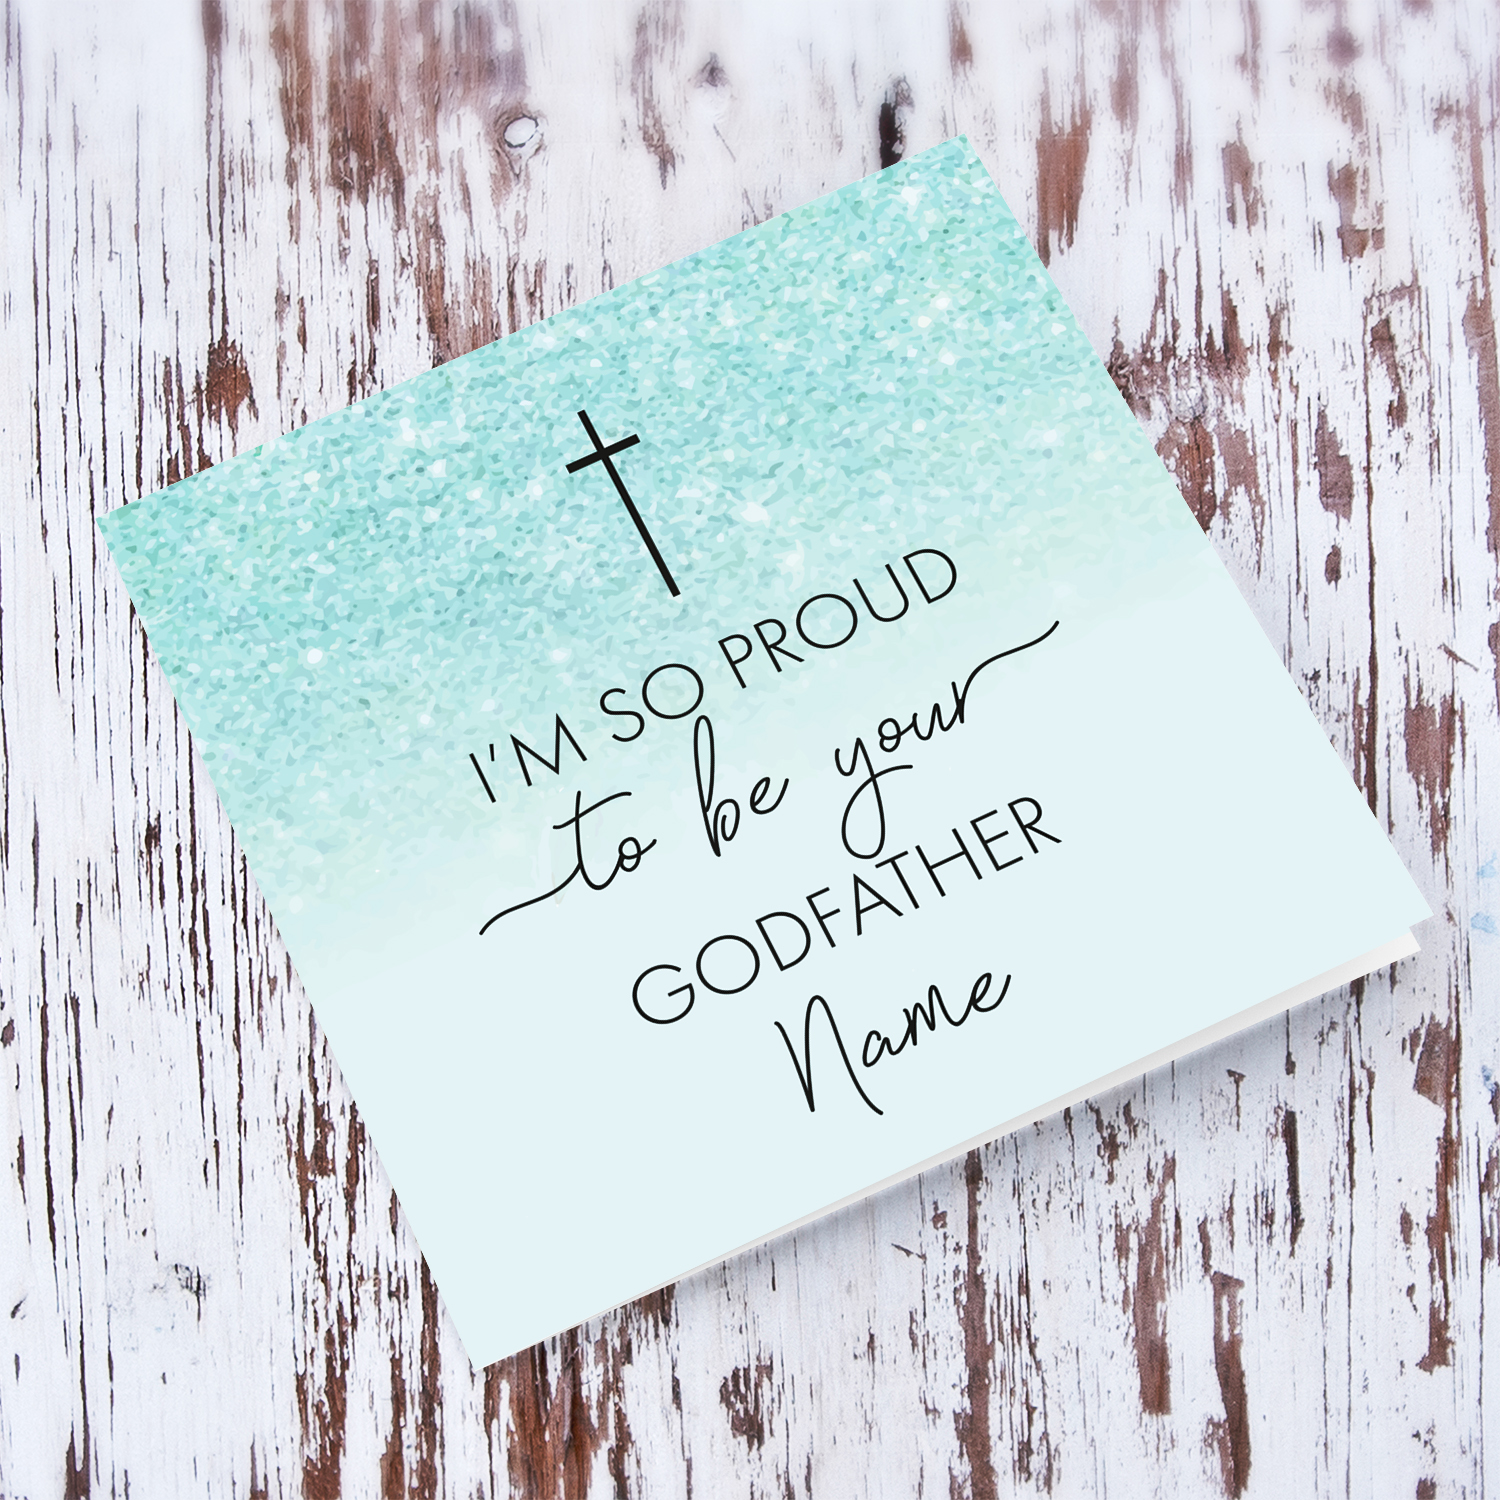 I'M SO PROUD
to be your
GODFATHER
Name